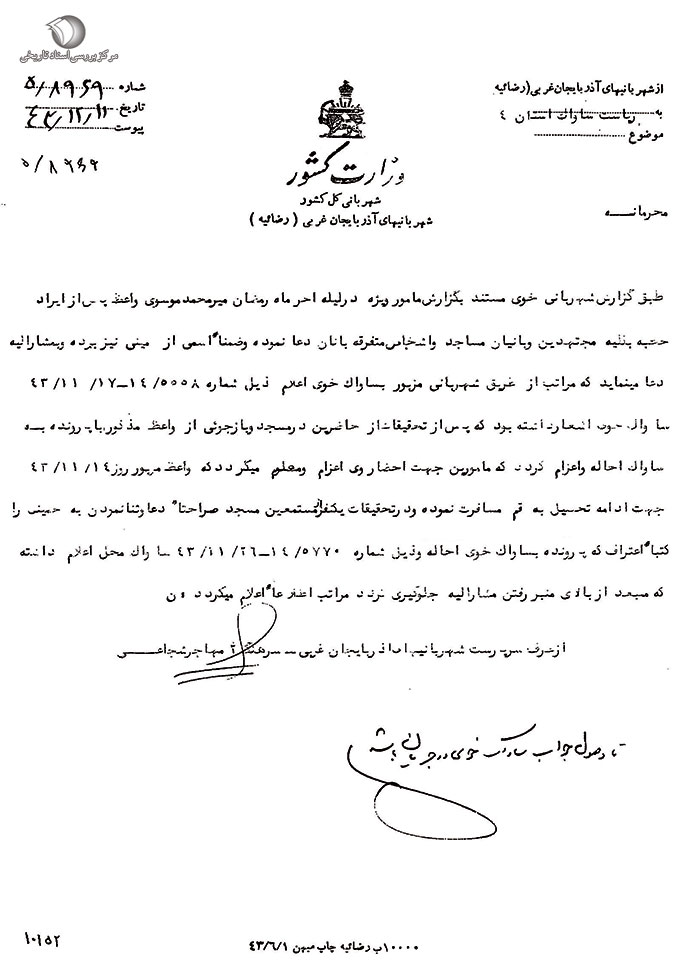 مرکز بررسی اسناد تاریخی
از شهربانیهای آذربایجان غربی (رضائیه
به ریاست ساواک استان ٤
موضوع
شماره ۵/۸۹۶۹
تاریخ ٤٣/١٢/١١
پیوست
۵/۸۹۶۹
وزارت کشور
شهربانی کل کشور
شهربانیهای آذربایجان غربی ( رضائیه )
محرمانـــه
طبق گزارش شهربانی خوی مستند بگزارش مامور ویژه در لیله احر ماه رمضان میرمحمد موسوی واعظ پس از ایراد
خطبه بکلیه مجتهدین وبانیان مساجد واشخاص متفرقه بانان دعا نموده وضمنا ً اسمی از مینی نیز برده وبمشارالیه
دعا مینماید که مراتب از طریق شهربانی مزبور بساواک خوی اعلام ذیل شماره ۵۰۰۸/١٤ـ١٧/ ١١/ ٤٣
ساواک خوی اشعار داشته بود که پس از تحقیقات از حاضرین در مسجد وبازجوئی از واعظ مذکور با پرونده بـه
ساواک احاله واعزام گردد که مامورین جهت احضار وی اعزام ومعلوم میگردد که واعظ مزبور روز ١٤/ ١١/ ٤٣
جهت ادامه تحصیل به قم مسافرت نموده ودر تحقیقات یکنفر از مستمعین مسجد صراحتا ً دعا وثنا نمودن به خمینی را
کتبا ً اعتراف که پرونده بساواک خوی احاله وذیل شماره ۵٧٧٠/١٤ـ٢٦/ ١١/ ٤٣ ساواک محل اعلام داشته
که مبعد از بالای منبر رفتن مشارالیه جلوگیری گردد مراتب اطلاعا ً اعلام میگردد ن
ازطرف سرپرست شهربانیهای آذربایجان غربی ـ سرهنگ ٢ مهاجر شجاعـــی
تا وصول جواب ساواک خوی در جریان باشد
١٠١۵٢
١٠٠٠٠ ب رضائیه چاپ میهن ٤٣/٦/١